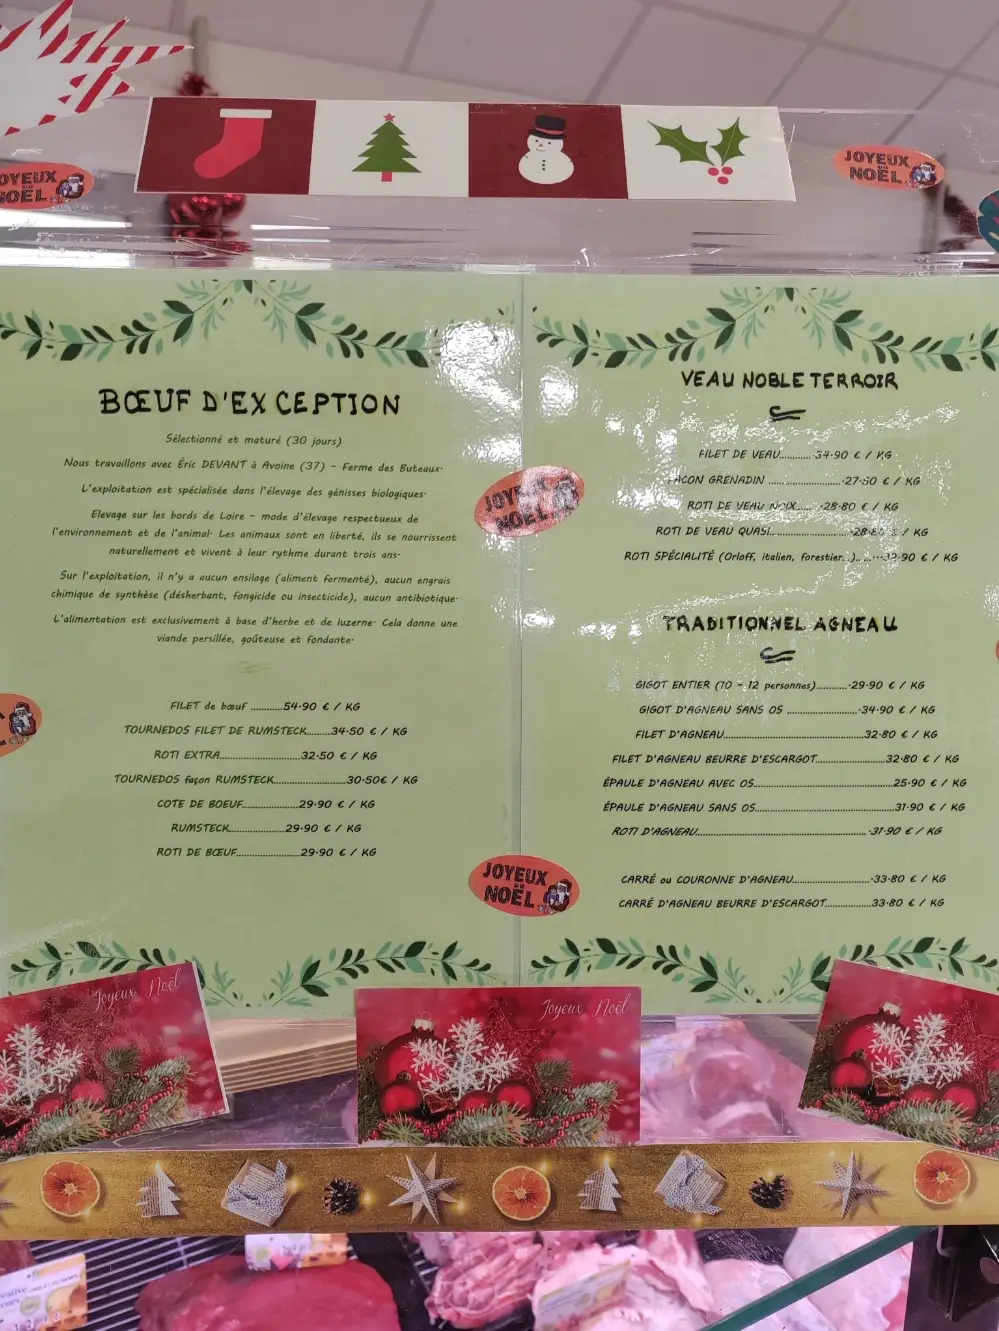 JOYEUX
NOËL
BŒUF D'EXCEPTION
Sélectionné et maturé (30 jours)
Nous travaillons avec Éric DEVANT à Avoine (37) - Ferme des Buteaux.
L'exploitation est spécialisée dans l'élevage des génisses biologiques.
Elevage sur les bords de Loire - mode d'élevage respectueux de
l'environnement et de l'animal. Les animaux sont en liberté, ils se nourrissent
naturellement et vivent à leur rythme durant trois ans.
Sur l'exploitation, il n'y a aucun ensilage (aliment fermenté), aucun engrais
chimique de synthèse (désherbant, fongicide ou insecticide), aucun antibiotique.
L'alimentation est exclusivement à base d'herbe et de luzerne. Cela donne une
viande persillée, goûteuse et fondante.
FILET de bœuf ............54.90 € / KG
TOURNEDOS FILET DE RUMSTECK.........34.50 € / KG
ROTI EXTRA..............................32.50 € / KG
TOURNEDOS façon RUMSTECK...........................30.50€ / KG
COTE DE BOEUF.....................29.90 € / KG
RUMSTECK.....................29.90 € / KG
ROTI DE BŒUF........................29.90 € / KG
JOYEUX
NOËL
VEAU NOBLE TERROIR
FILET DE VEAU............34.90 € / KG
GRENADIN ............................27.50 € / KG
ROTI DE VEAU NOIX...... .28.80 € / KG
ROTI DE VEAU QUASI € / KG
ROTI SPÉCIALITÉ (Orloff, italien, forestier...) € / KG
TRADITIONNEL AGNEAU
GIGOT ENTIER (10 - 12 personnes)............29.90 € / KG
GIGOT D'AGNEAU SANS OS ...........................34.90 € / KG
FILET D'AGNEAU......................................................32.80 € / KG
FILET D'AGNEAU BEURRE D'ESCARGOT...........................32.80 € / KG
ÉPAULE D'AGNEAU AVEC OS.....................................................25.90 € / KG
ÉPAULE D'AGNEAU SANS OS.....................................................31.90 € / KG
ROTI D'AGNEAU................................................................31.90 € / KG
CARRÉ ou COURONNE D'AGNEAU..............................33.80 € / KG
CARRÉ D'AGNEAU BEURRE D'ESCARGOT..................33.80 € / KG
JOYEUX
NOËL
JOYEUX
NOËL
Joyeux Noël
Joyeux Noël